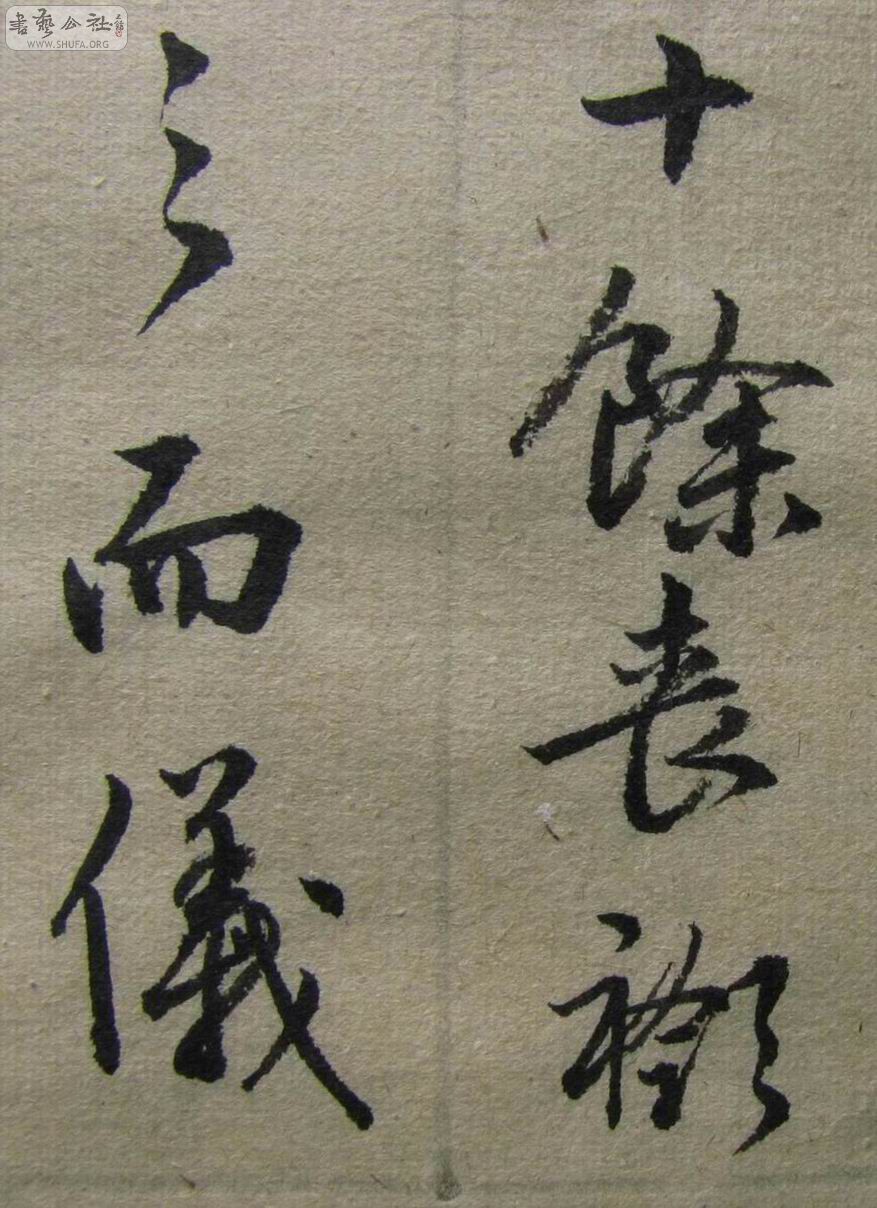 書藝公社
WWW.SHUFA.ORG
十餘喪
之而儀